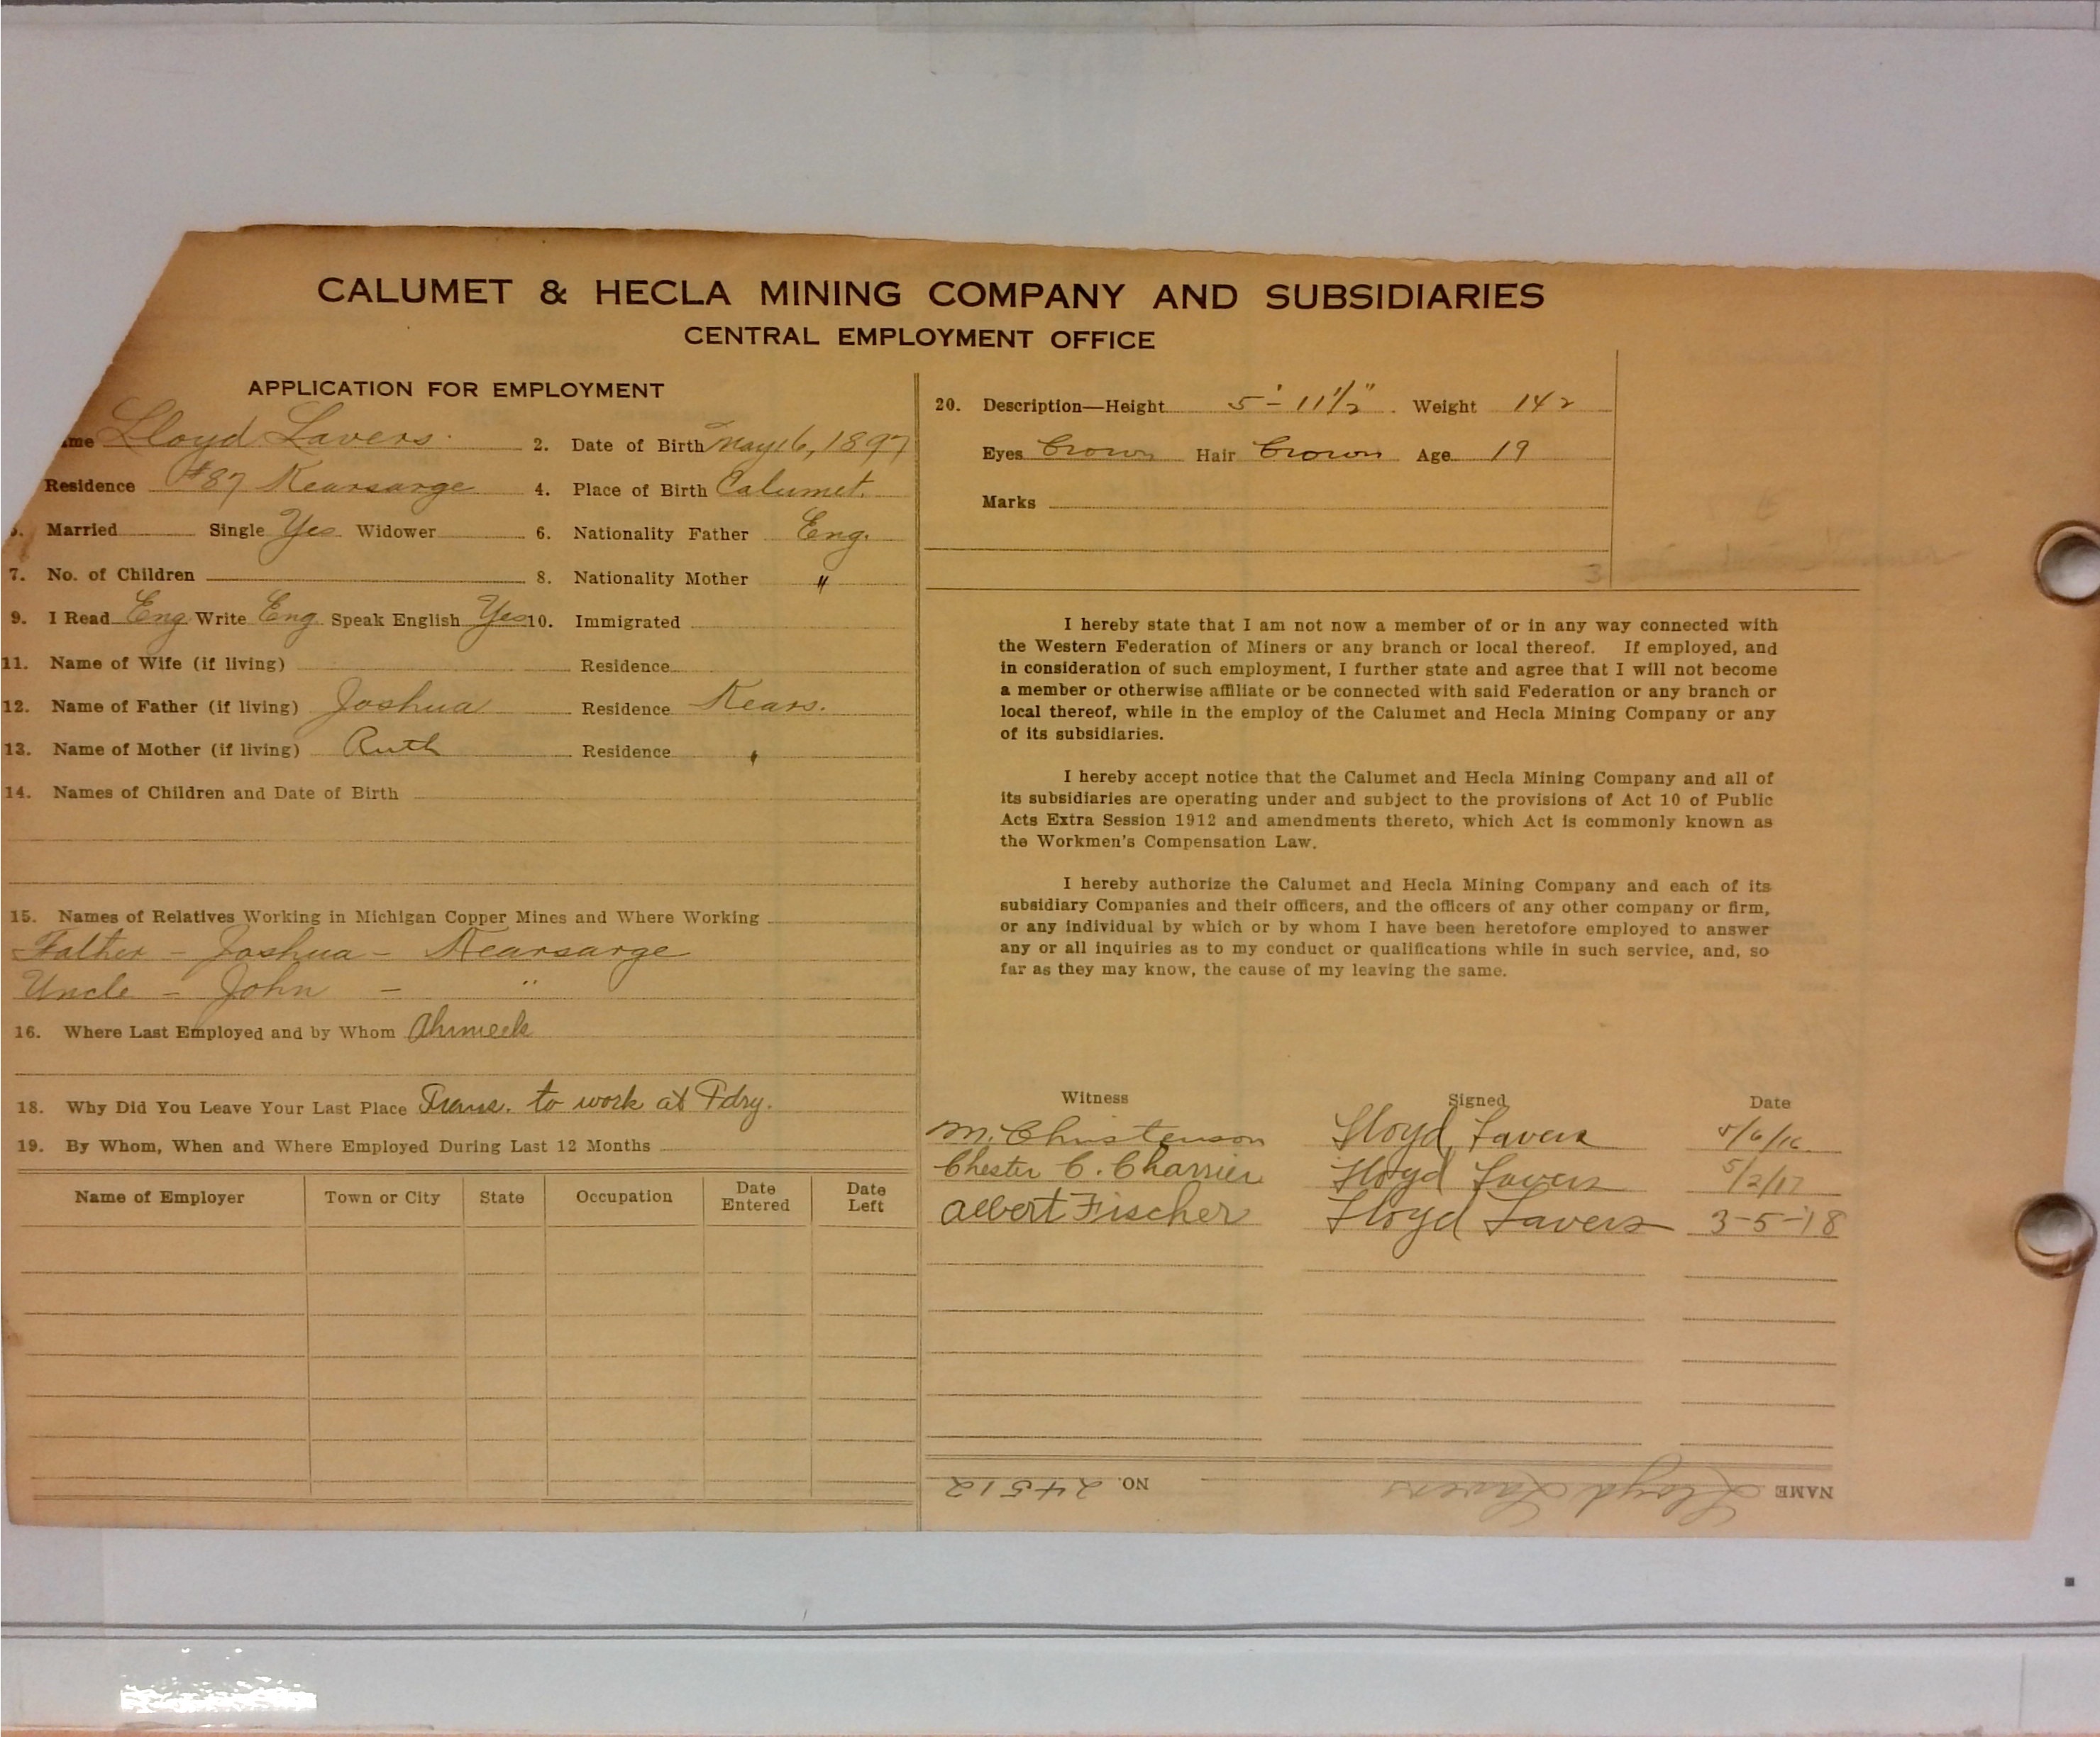 CALUMET & HECLA MINING COMPANY AND SUBSIDIARIES
CENTRAL EMPLOYMENT OFFICE
APPLICATION FOR EMPLOYMENT
me Lloyd Lavers. 2. Date of Birth May 16, 1897
Residence #87 Kearsarge 4. Place of Birth Calumet.
Married Single Yes Widower 6. Nationality Father Eng.
7. No. of Children 8. Nationality Mother "
9. I Read Eng Write Eng Speak English Yes 10. Immigrated
11. Name of Wife (if living) Residence
12. Name of Father (if living) Joshua Residence Kears.
13. Name of Mother (if living) Ruth Residence "
14. Names of Children and Date of Birth
15. Names of Relatives Working in Michigan Copper Mines and Where Working
Father - Joshua - Kearsarge
Uncle - John - "
16. Where Last Employed and by Whom Ahmeek
18. Why Did You Leave Your Last Place Trans. to work at Fdry.
19. By Whom, When and Where Employed During Last 12 Months
Name of Employer Town or City State Occupation Date Entered Date Left
20. Description—Height 5'-11 1/2" Weight 142
Eyes Brown Hair Brown Age 19
Marks
I hereby state that I am not now a member of or in any way connected with
the Western Federation of Miners or any branch or local thereof. If employed, and
in consideration of such employment, I further state and agree that I will not become
a member or otherwise affiliate or be connected with said Federation or any branch or
local thereof, while in the employ of the Calumet and Hecla Mining Company or any
of its subsidiaries.
I hereby accept notice that the Calumet and Hecla Mining Company and all of
its subsidiaries are operating under and subject to the provisions of Act 10 of Public
Acts Extra Session 1912 and amendments thereto, which Act is commonly known as
the Workmen's Compensation Law.
I hereby authorize the Calumet and Hecla Mining Company and each of its
subsidiary Companies and their officers, and the officers of any other company or firm,
or any individual by which or by whom I have been heretofore employed to answer
any or all inquiries as to my conduct or qualifications while in such service, and, so
far as they may know, the cause of my leaving the same.
Witness Signed Date
M. Christenson Lloyd Lavers 5/6/16
Chester C. Charrier Lloyd Lavers 5/2/17
Albert Fischer Lloyd Lavers 3-5-18
NAME Lloyd Lavers NO. 24512